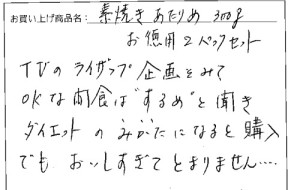 お買い上げ商品名： 素焼きあたりめ 300g
お徳用2パックセット
TVのライザップ企画をみて
OKな肉食は"するめ"と聞き
ダイエットのみかたになると購入
でも おいしすぎて とまりません....